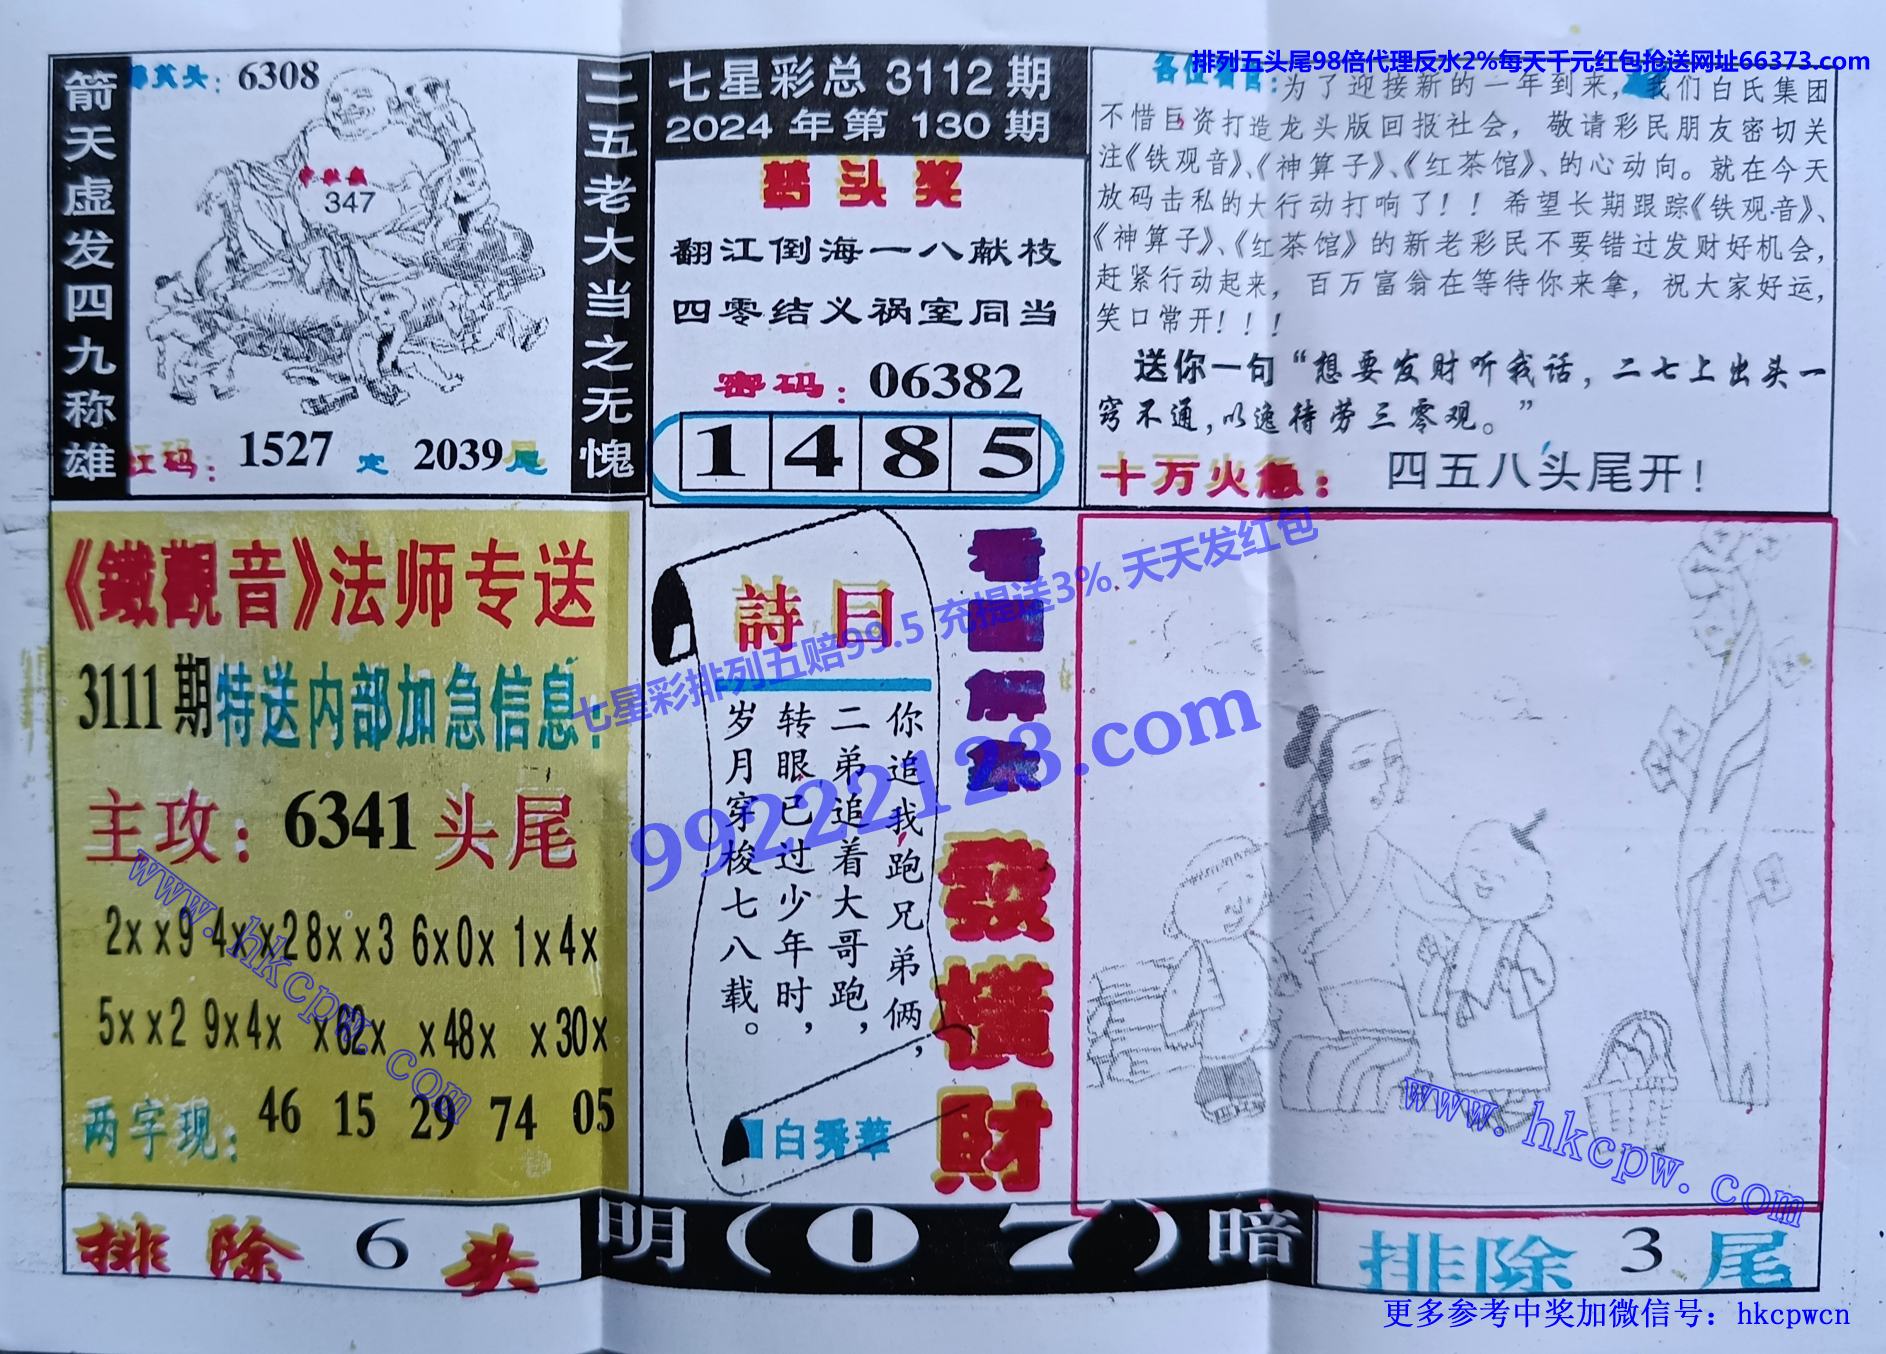 排列五头尾98倍代理反水2%每天千元红包抢送网址66373.com
箭天虚发四九称雄
头：6308
347
红码：1527 定 2039尾
二五老大当之无愧
七星彩总 3112 期
2024 年第 130 期
梦头奖
翻江倒海一八献枝
四零结义祸室同当
密码：06382
1 4 8 5
各位
为了迎接新的一年到来，我们白氏集团
不惜巨资打造龙头版回报社会，敬请彩民朋友密切关
注《铁观音》、《神算子》、《红茶馆》、的心动向。就在今天
放码击私的大行动打响了！！希望长期跟踪《铁观音》、
《神算子》、《红茶馆》的新老彩民不要错过发财好机会，
赶紧行动起来，百万富翁在等待你来拿，祝大家好运，
笑口常开！！！
送你一句“想要发财听我话，二七上出头一
窍不通，以逸待劳三零观。”
十万火急：四五八头尾开！
《鐵觀音》法师专送
3111期特送内部加急信息：
主攻：6341头尾
2xx9 4xx2 8xx3 6x0x 1x4x
5xx2 9x4x x62x x48x x30x
两字现：46 15 29 74 05
詩目
你追我跑兄弟俩，
二弟追着大哥跑，
转眼已过少年时，
岁月穿梭七八载。
白秀華
看图解
發橫財
七星彩排列五赔99.5 充提送3% 天天发红包
99222123.com
www.hkcpw.com
www.hkcpw.com
排除 6 头
明（0 7）暗
排除 3 尾
更多参考中奖加微信号：hkcpwcn